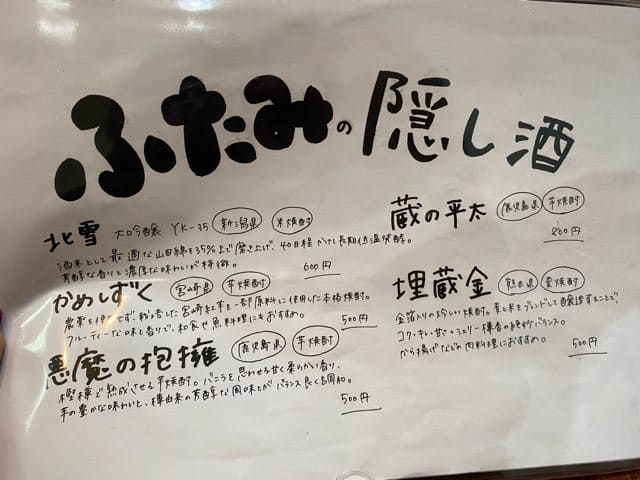 ふたみの隠し酒
北雪 大吟醸 YK-35 新潟県 米焼酎
酒米として最適な山田錦を35%まで磨き上げ、40日程かけて長期低温発酵。
芳醇な香りと濃厚な味わいが特徴。
600円
かめしずく 宮崎県 芋焼酎
農薬を使わず、宮崎紅芋を一部原料に使用した本格焼酎。
フルーティーな味と香りで、和食や魚料理にもおすすめ。
500円
悪魔の抱擁 鹿児島県 芋焼酎
樫樽で熟成させる芋焼酎。バニラを思わせる甘く柔らかい香り、
芋の豊かな味わいと、樽由来の芳醇な風味とがバランス良く調和。
500円
蔵の平太 鹿児島県 芋焼酎
800円
埋蔵金 熊本県 麦焼酎
金箔入りの珍しい焼酎。麦と米をブレンドして醸造することで、
コク・キレ・甘さ・シェリー樽香の絶妙バランス。
から揚げなどの肉料理におすすめ。
500円